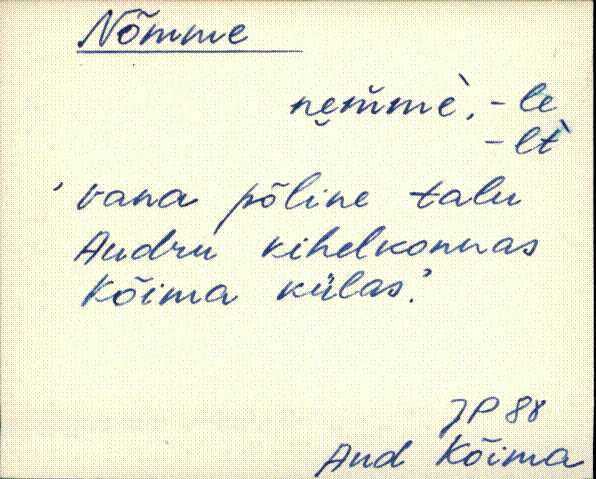 Nõmme
ne̮m̆mè, -le
-lt̀
'vana põline talu
Audru kihelkonnas
Kõima külas.'
JP 88
Aud Kõima